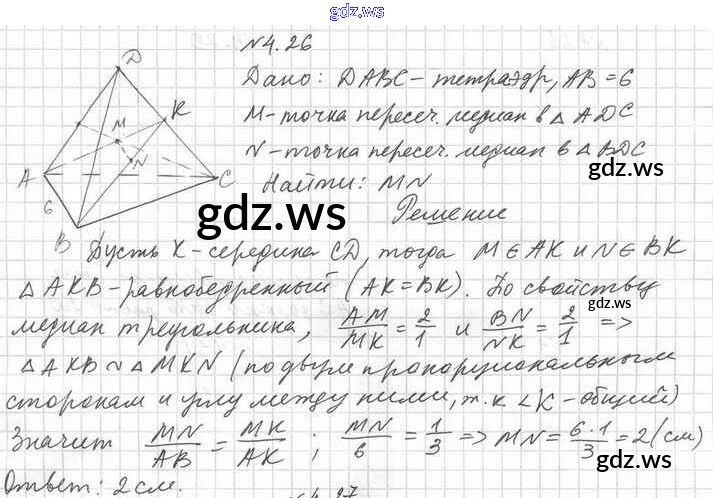 gdz.ws
№4.26
Дано: DABC - тетраэдр, AB = 6
M - точка пересеч. медиан в △ ADC
N - точка пересеч. медиан в △ BDC
Найти: MN
Решение
D
K
M
N
A
C
6
B
gdz.ws
gdz.ws
Пусть K - середина CD, тогда M ∈ AK и N ∈ BK
△ AKB - равнобедренный (AK = BK). По свойству
gdz.ws
медиан треугольника, AM/MK = 2/1 и BN/NK = 2/1 =>
△ AKB ~ △ MKN (по двум пропорциональным
сторонам и углу между ними, т.к ∠K - общий)
Значит MN/AB = MK/AK ; MN/6 = 1/3 => MN = 6·1/3 = 2 (см)
Ответ: 2 см.
gdz.ws
№4.27